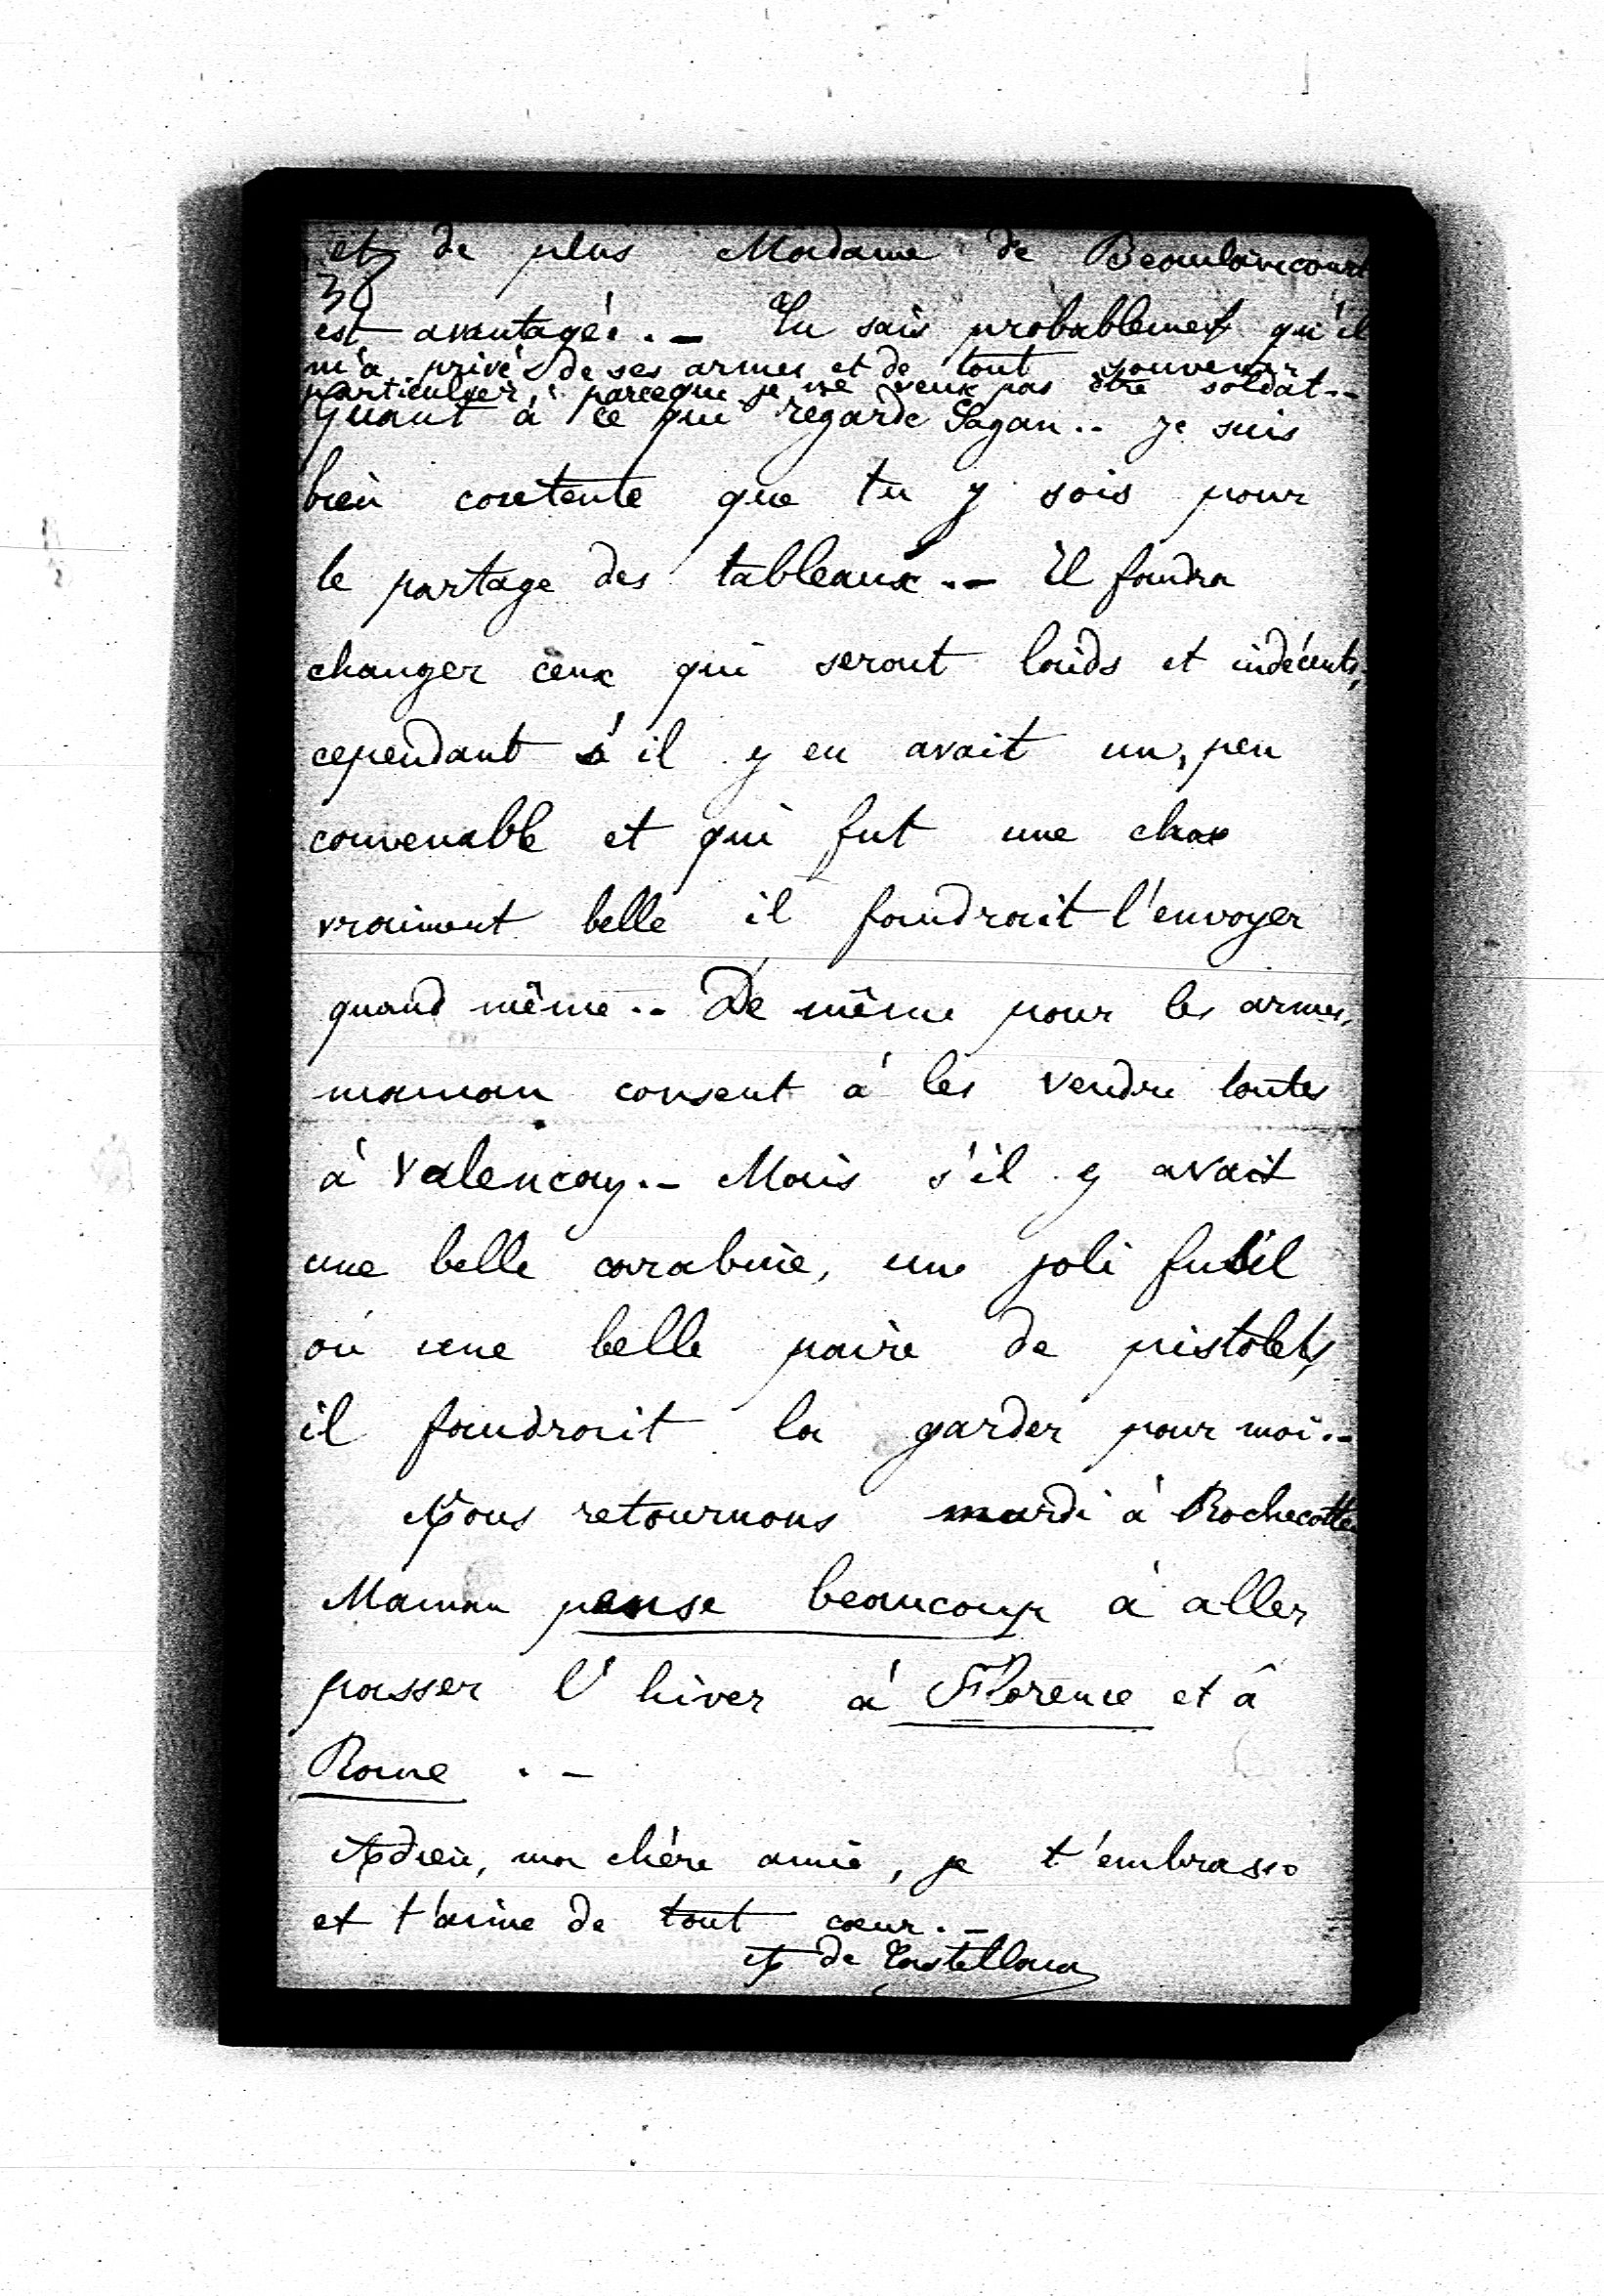 et de plus Madame de Beaulaincourt
38
est avantagée. – Tu sais probablement qu'il
m'a privé de ses armes et de tout souvenir
particulier, parceque je ne veux pas être soldat. –
Quant à ce qui regarde Sagan.. je suis
bien contente que tu y sois pour
le partage des tableaux. – Il faudra
changer ceux qui seront laids et indécents,
cependant s'il y en avait un, peu
convenable et qui fut une chose
vraiment belle il faudrait l'envoyer
quand même.. De même pour les armes,
maman consent à les vendre toutes
à Valencay. – Mais s'il y avait
une belle carabine, un joli fusil
ou une belle paire de pistolets,
il faudrait la garder pour moi. –
Nous retournons mardi à Rochecotte
Maman pense beaucoup à aller
passer l'hiver à Florence et à
Rome . –
Adieu, ma chère amie, je t'embrasse
et t'aime de tout cœur. –
A de Castellane